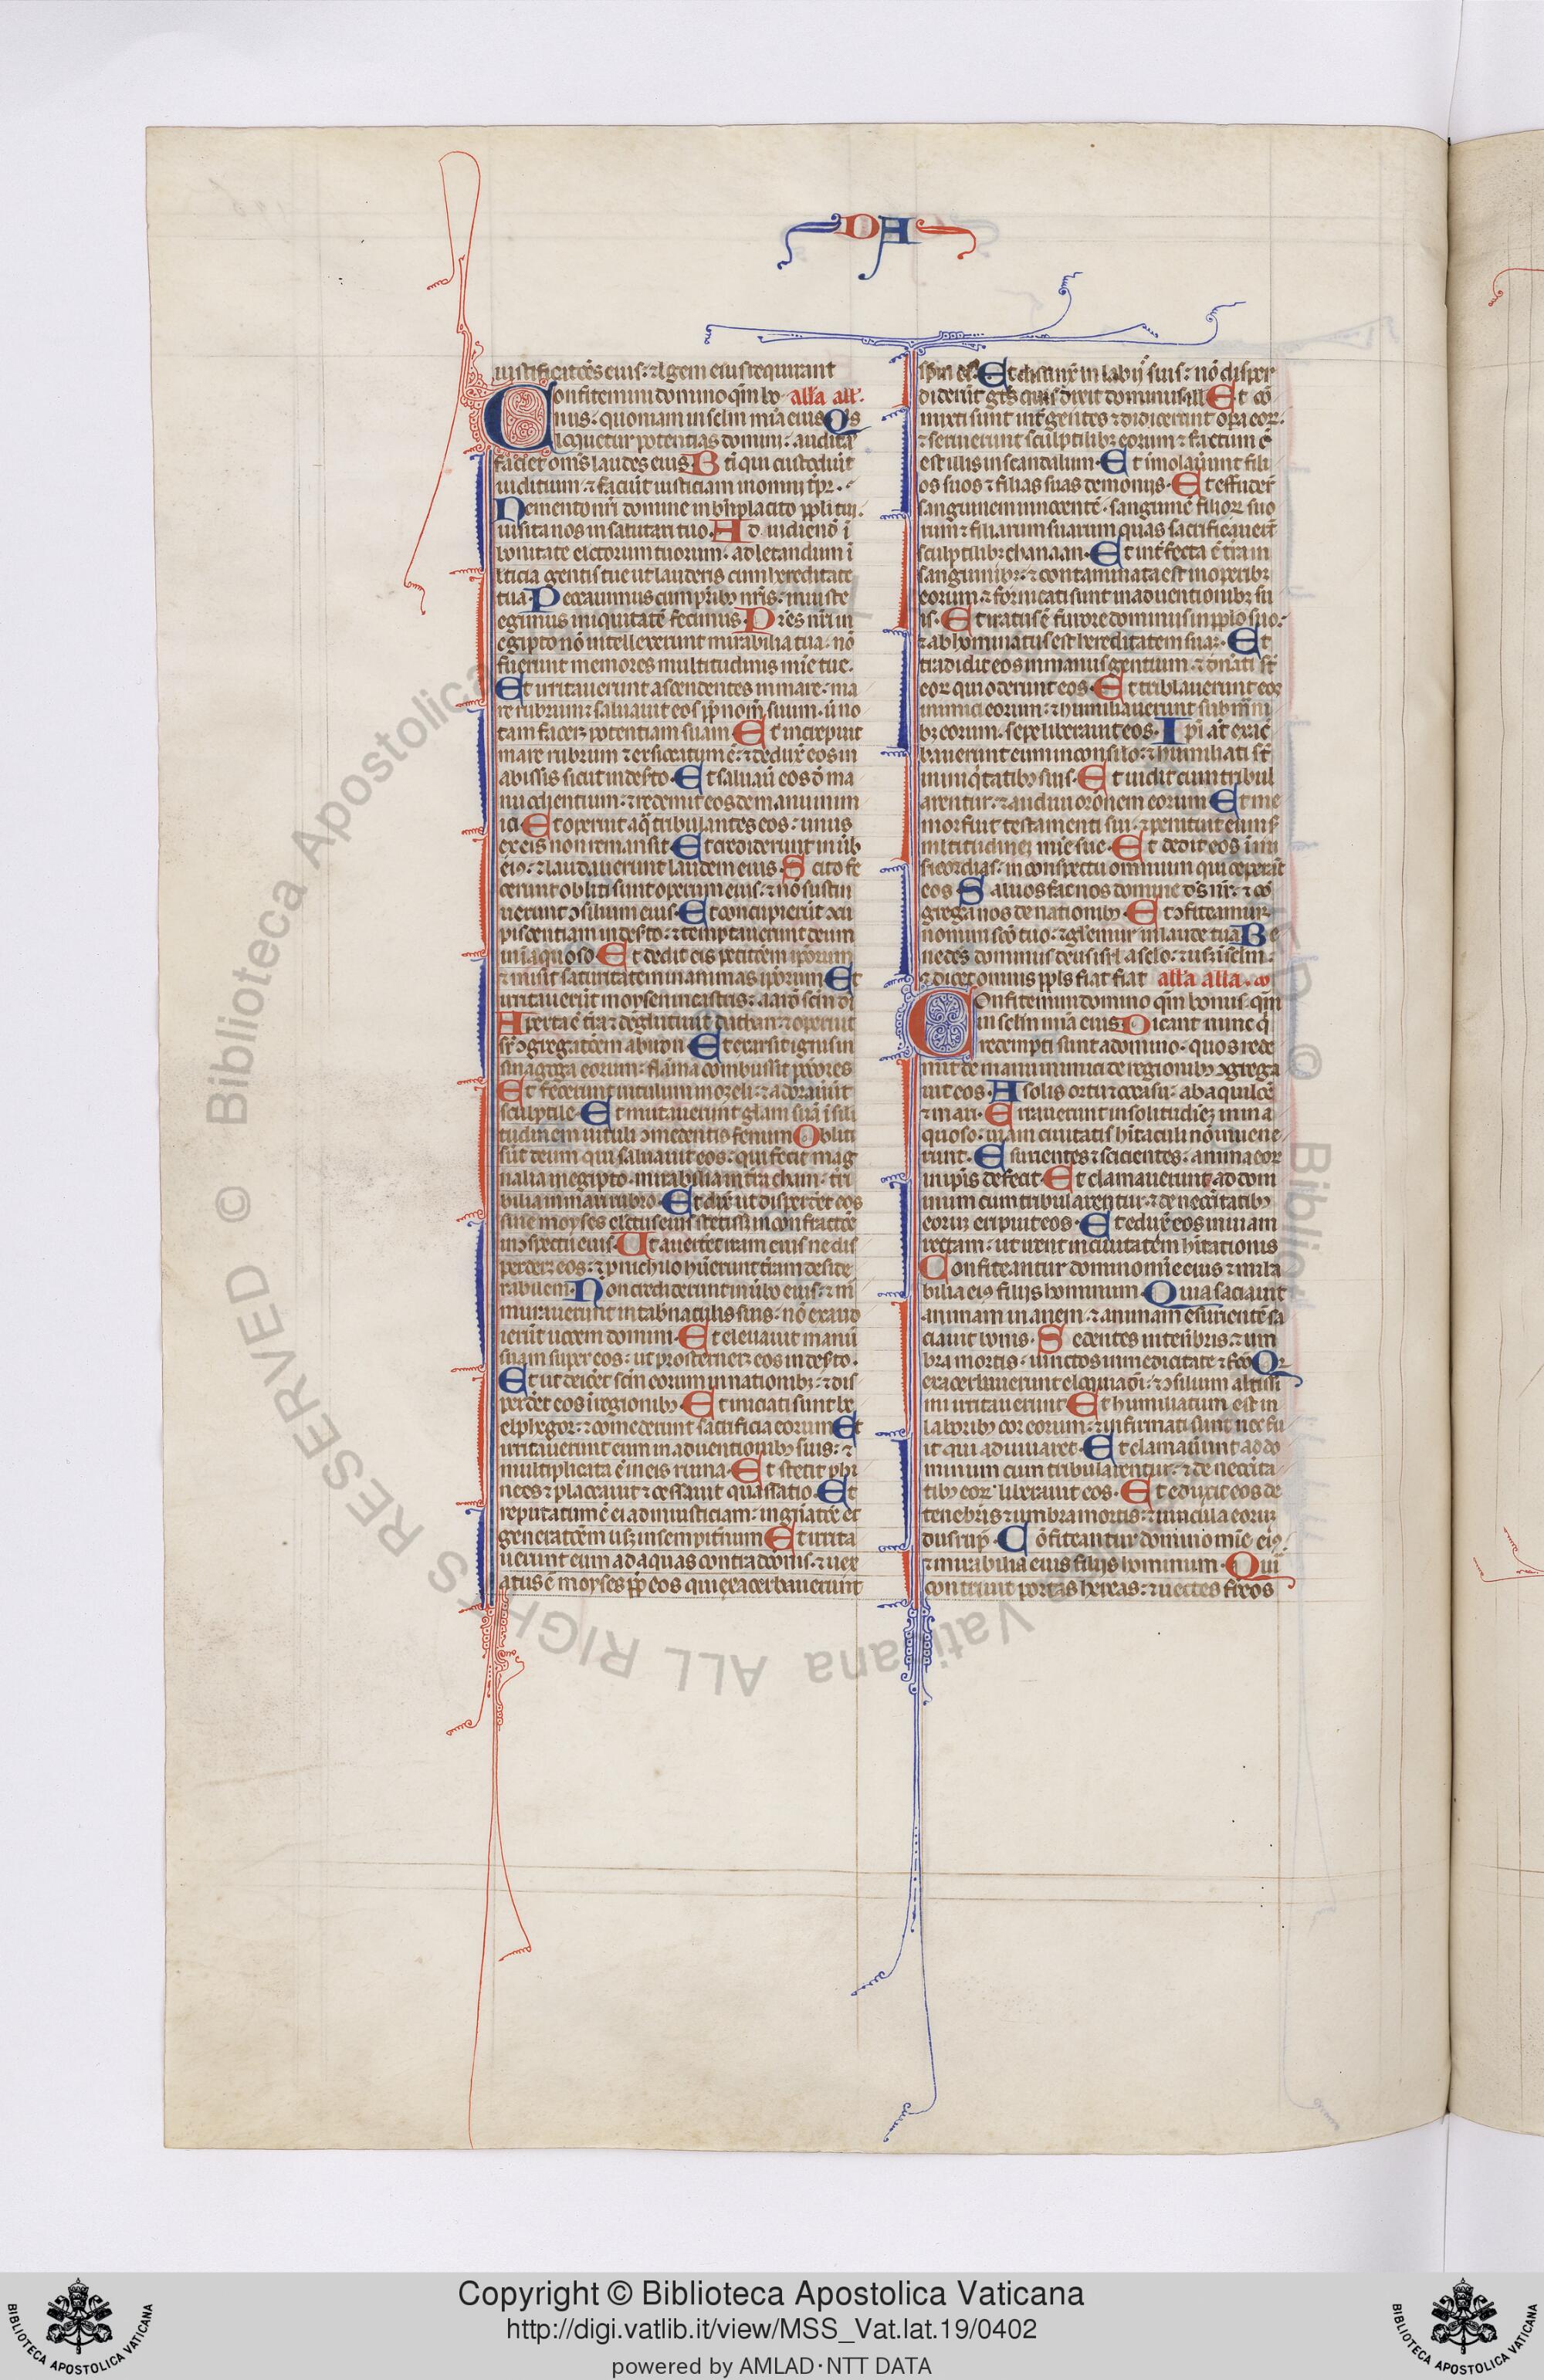 DA
iustificatões eius: ⁊ legem eius requirant
Confitemini domino qm̃ bo alla all'.
nus: quoniam in seclm mĩa eius Qis
loquetur potentias domini: auditas
faciet om̃s laudes eius Bti qui custodiũt
iudicium: ⁊ faciũt iusticiam in omni tp̃r.
Memento nr̃i domine in bñplacito ppl̃i tui:
uisita nos in salutari tuo. Ad uidiend̃ ĩ
bonitate electorum tuorum: ad letandum ĩ
leticia gentis tue ut lauderis cum hereditate
tua. Peccauimus cum pr̃ibꝯ nr̃is: iniuste
egimus iniquitatẽ fecimus. Pr̃es nr̃i in
egipto nõ intellexerunt mirabilia tua: nõ
fuerunt memores multitudinis mĩe tue.
Et irritauerunt ascendentes in mare: ma
re rubrum: ⁊ saluauit eos pp̃ nom̃ suum: ũ no
tam facerꝫ potentiam suam Et increpuit
mare rubrum ⁊ exsiccatum ẽ: ⁊ deduxˀ eos in
abissis sicut in deserto. Et saluaũ eos d̃ ma
nu odientium: ⁊ redemit eos de manu inim
ici. Et operuit aq̃ tribulantes eos: unus
ex eis non remansit. Et crediderunt in ũb
eiꝯ: ⁊ laudauerunt laudem eius. S cito fe
cerunt obliti sunt operum eius: ⁊ nõ sustin
uerunt ↄsilium eius. Et concupierũt ↄcu
piscentiam in deserto: ⁊ temptauerunt deum
in ĩaquoso Et dedit eis petitõem ip̃orum
⁊ misit saturitatem in animas ip̃orum Et
irritauerũt moysen in castris: aarõ scm̃ dĩ
Aperta ẽ tr̃a ⁊ deglutiuit dathan: ⁊ operuit
sr̃ ↄgregatõem abiron Et exarsit ignis in
sinagoga eorum: flãma combussit pctõres
Et fecerunt uitulum in oreb: ⁊ adorauũt
sculptile. Et mutauerunt glam̃ suã ĩ sili
tudinem uituli ↄmedentis fenum Obliti
sũt deum qui saluauit eos: qui fecit mag
nalia in egipto mirabilia in tr̃a cham: tr̃i
bilia in mari rubro. Et dix̃ ut dispert̃et eos
sine moyses electus eius stetiss in confractõe
in ↄspectu eius. Ut auert̃et iram eius ne dis
perderꝫ eos: ⁊ ꝓ nichilo hũerunt tr̃am deside
rabilem Non crediderunt in ũbo eius: ⁊ m̃
murauerunt in tabnaculis suis: nõ exaud
ierũt uocem domini. Et eleuauit manũ
suam super eos: ut prosternerꝫ eos in des̃to.
Et ut deic̃et sem̃ eorum in nationibꝫ: ⁊ dis
perd̃et eos ĩ regionibꝯ Et iniciati sunt be
elphegor: ⁊ comederunt sacrificia mortuorum Et
irritauerunt eum in aduentionibꝯ suis: ⁊
multiplicata ẽ in eis ruina. Et stetit phi
nees ⁊ placauit ⁊ cessauit quassatio. Et
reputatum ẽ ei ad in iusticiam: in gñatõe et
generatõem usꝫ in sempit̃num Et irrita
uerunt eum ad aquas contradictõnis: ⁊ uex
atus ẽ moyses pp̃ eos qui exacerbauerunt
spm̃ eiꝯ. Et distinx̃ in labijs suis: nõ disper
diderũt gt̃s quas dixit dominus illi Et cõ
mixti sunt int̃ gentes ⁊ didicerunt opa eorꝫ.
⁊ seruierunt sculptilibꝫ eorum ⁊ factum ẽ
est illis in scandalum. Et ĩmolaũunt fili
os suos ⁊ filias suas demonijs. Et effuder̃
sanguinem innocentẽ: sanguinẽ filioꝝ suo
rum ⁊ filiarum suarum quas sacrificauer̃
sculptilibꝫ chanaan. Et int̃fecta ẽ tr̃a in
sanguinibꝫ: ⁊ contaminata est in operibꝫ
eorum: ⁊ fornicati sunt in aduentionibꝫ su
is. Et iratus ẽ furore dominus in pplo suo:
⁊ abhominatus est hereditatem suam. Et
tradidit eos in manus gentium: ⁊ dñati st̃
eoꝝ qui oderunt eos. Et tribulauerunt eos
inimici eorum: ⁊ humiliauerunt sub m̃ni
bꝫ eorum. sepe liberauit eos. Ip̃i at̃ exac̃
bauerunt eum in consilio: ⁊ humiliati st̃
in iniq̃tatibꝯ suis. Et uidit cum tribul
arentur: ⁊ audiuit or̃onem eorum Et me
mor fuit testamenti sui: ⁊ penituit eum s̃
multitudinẽ mĩe sue. Et dedit eos ĩ mi
sicordias: in conspectu omnium qui ceperãt
eos. Saluos fac nos domine ds̃ nr̃: ⁊ cõ
grega nos de nationibꝯ. Et ↄfiteamur
nomini sc̃o tuo: ⁊ gl̃emur in laude tua Be
nedc̃s dominus deus isr̃l a sclo: ⁊ usꝫ ĩ sclm̃.
⁊ dicet omnis ppl̃s fiat fiat alla alla. co
Confitemini domino qm̃ bonus: qm̃
in seclm̃ mĩa eius Dicant nunc q̃
redempti sunt a domino: quos rede
mit de manu inimici de regionibꝯ ↄgrega
uit eos. A solis ortu ⁊ occasu: ab aquilõe
⁊ mari. Errauerunt in solitudĩeꝫ in ina
quoso: uiam ciuitatis hĩtaculi nõ inuene
runt. Esurientes ⁊ scicientes: anima eoꝝ
in ip̃is defecit. Et clamauerunt ad dom
inum cum tribularentur: ⁊ de necc̃itatibꝯ
eorum eripuit eos. Et eduxˀ eos in uiam
rectam: ut irent in ciuitatem hĩtationis
Confiteantur domino mĩe eius ⁊ mira
bilia eiꝯ filijs hominum. Quia saciauit
animam inanem: ⁊ animam esurientẽ sa
ciauit bonis. Sedentes in tenebris: ⁊ um
bra mortis: uinctos in mendicitate ⁊ ferro Qr̃
exacerbauerunt eloquia dĩ: ⁊ ↄsilium altissi
mi irritauerunt Et humiliatum est in
laboribꝯ cor eorum: ⁊ infirmati sunt nec fu
it qui adiuuaret. Et clamaũunt ad do
minum cum tribularentur: ⁊ de necc̃ita
tibꝯ eoꝝ liberauit eos. Et eduxit eos de
tenebris ⁊ umbra mortis: ⁊ uincula eorum
disrup̃. Cõfiteantur domino mĩe eiꝯ:
⁊ mirabilia eius filijs hominum. Qui
contriuit portas hereas: ⁊ uectes fẽreos
© Biblioteca Apostolica Vaticana ALL RIGHTS RESERVED
Copyright © Biblioteca Apostolica Vaticana
http://digi.vatlib.it/view/MSS_Vat.lat.19/0402
powered by AMLAD·NTT DATA
BIBLIOTECA APOSTOLICA VATICANA
BIBLIOTECA APOSTOLICA VATICANA